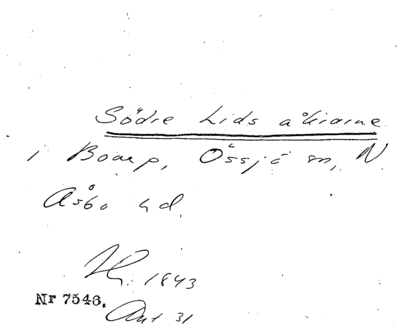 Södre Lids åkrarne
i Boarp, Össjö sn, N.
Åsbo hd.
1843
Nr 7548.
Ant 31